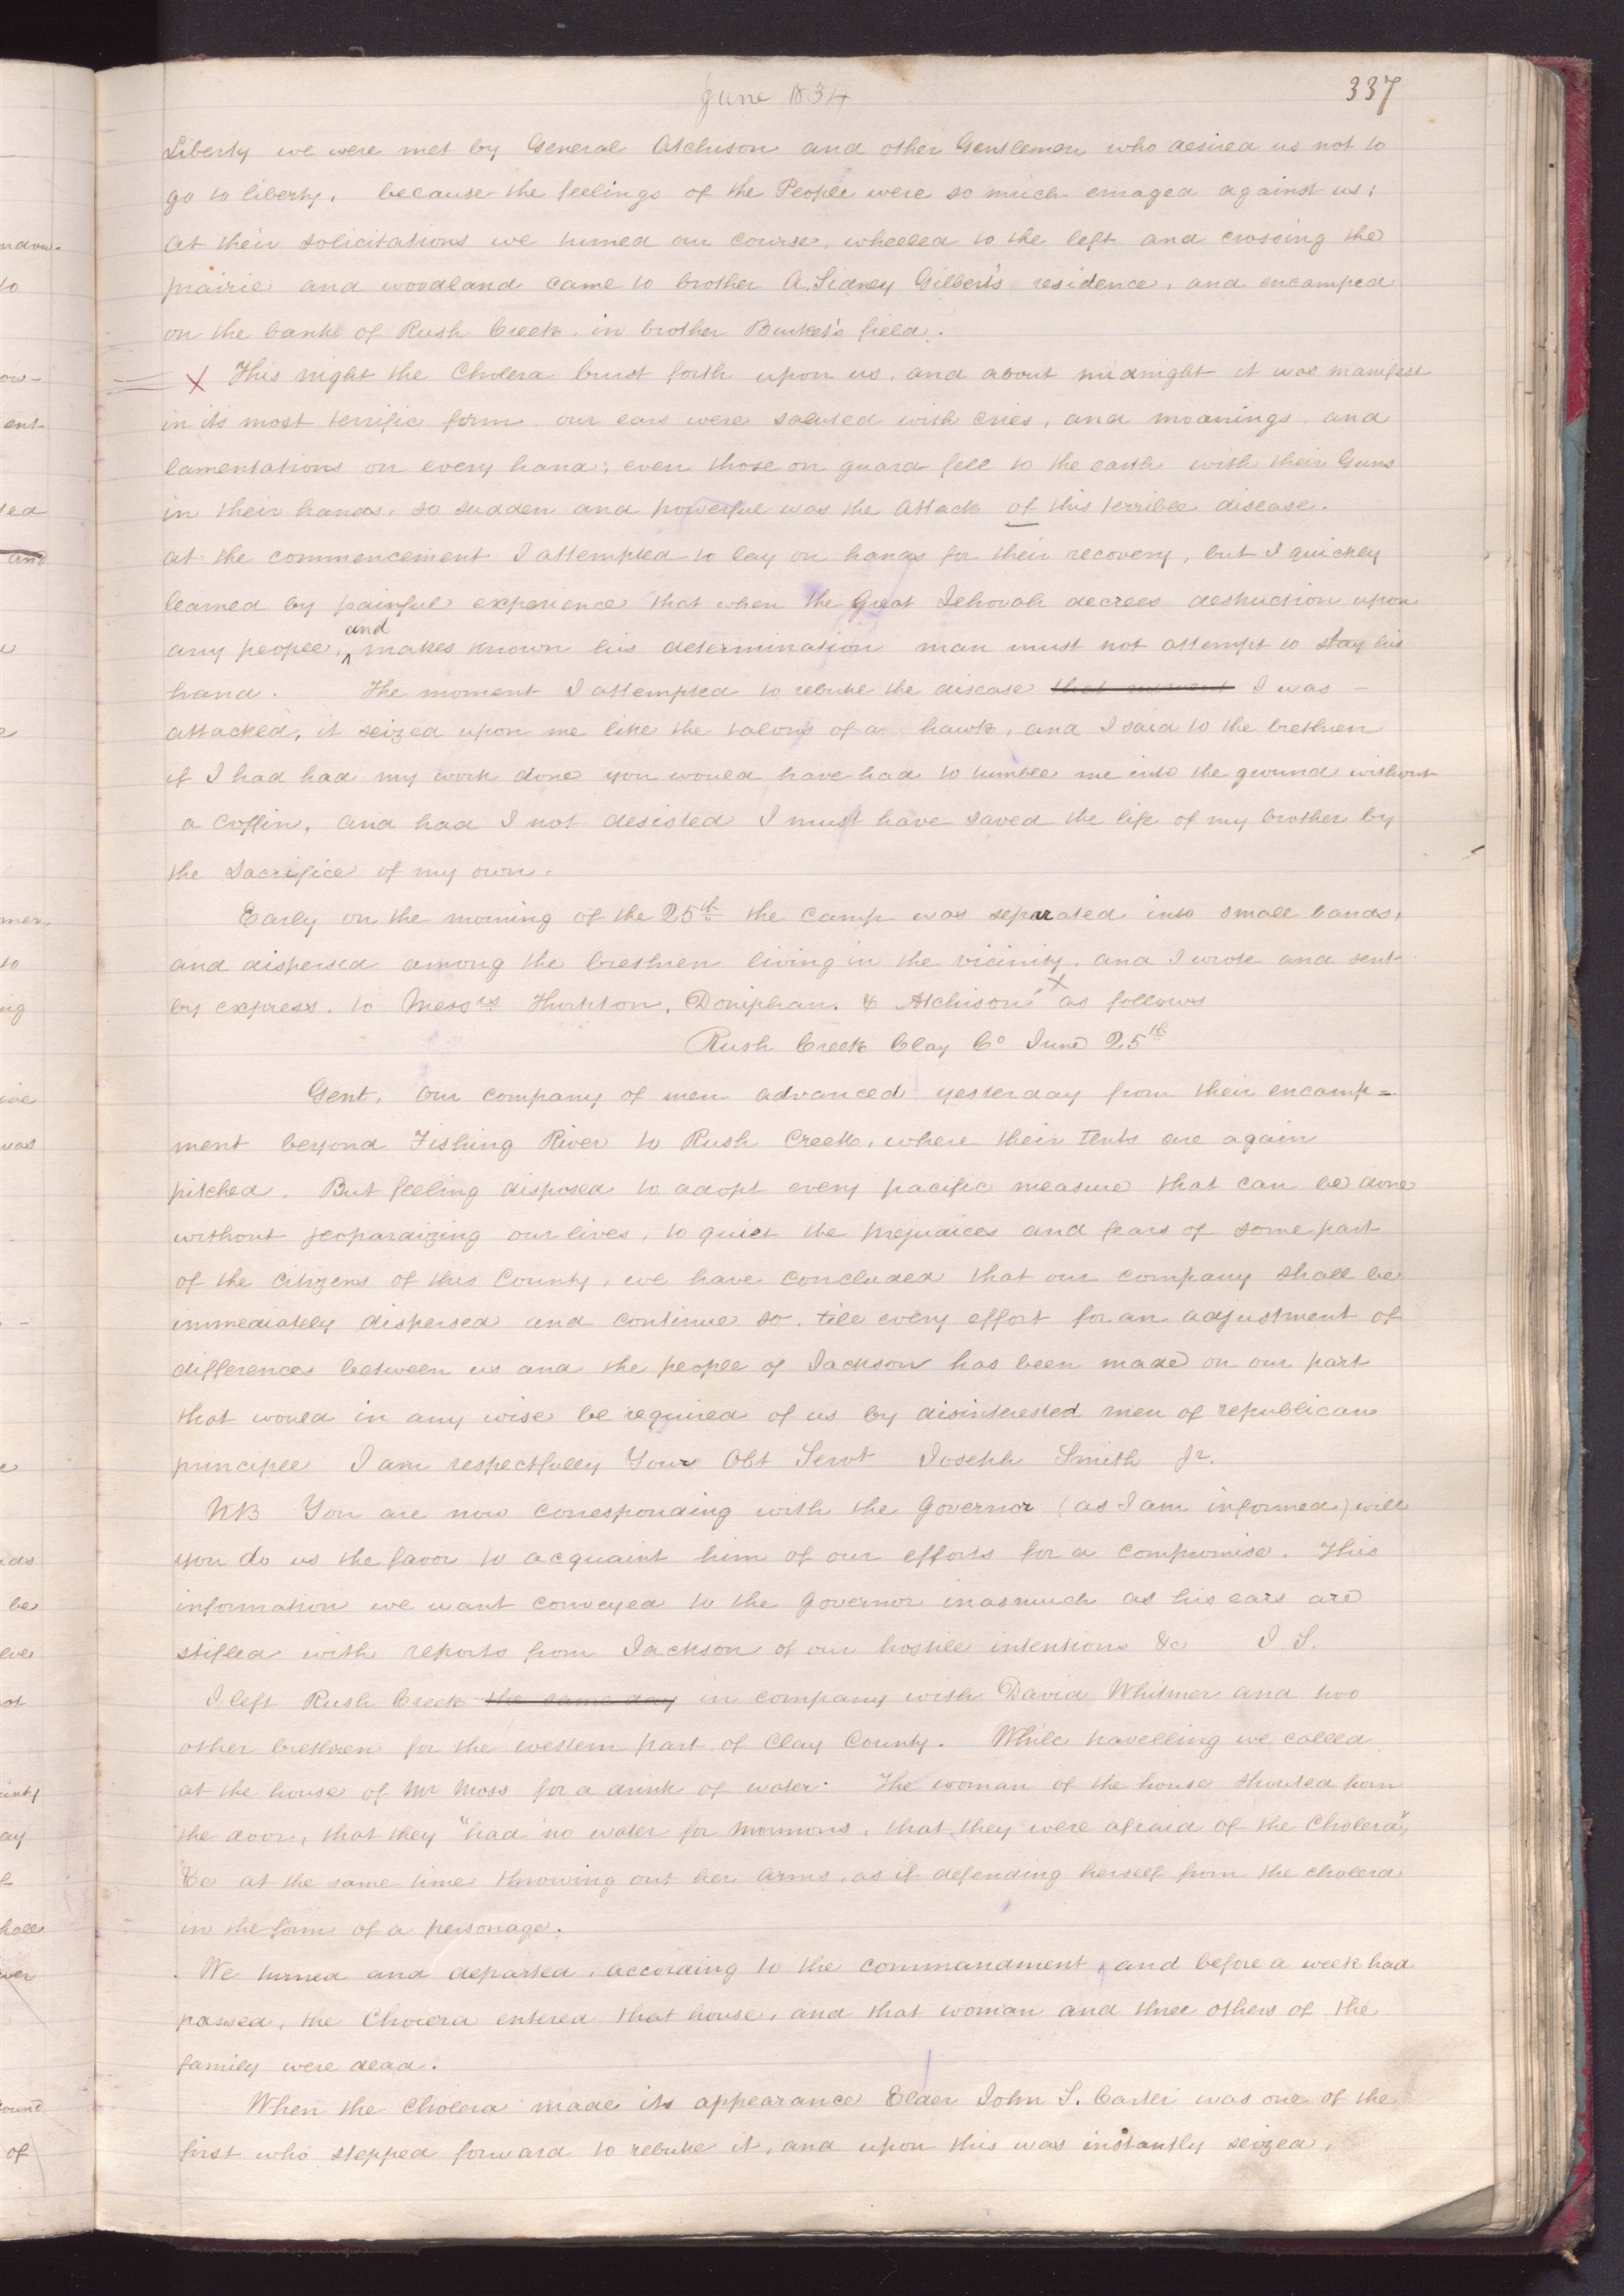 June 1834
337
Liberty we were met by General Atchison and other Gentlemen who desired us not to
go to liberty, because the feelings of the People were so much enraged against us;
at their solicitations we turned our course, wheeled to the left and crossing the
prairie and woodland came to brother A. Sidney Gilbert's residence, and encamped
on the bank of Rush Creek, in brother Burket's field.
X This night the Cholera burst forth upon us, and about midnight it was manifest
in its most terrific form, our ears were saluted with cries, and moanings, and
lamentations on every hand; even those on guard fell to the earth with their Guns
in their hands, so sudden and powerful was the attack of this terrible disease.
at the commencement I attempted to lay on hands for their recovery, but I quickly
learned by painful experience that when the Great Jehovah decrees destruction upon
any people, and makes known his determination man must not attempt to stay his
hand. The moment I attempted to rebuke the disease that moment I was -
attacked, it seized upon me like the talons of a hawk, and I said to the brethren
if I had had my work done you would have had to tumble me into the ground without
a coffin, and had I not desisted I must have saved the life of my brother by
the sacrifice of my own.
Early on the morning of the 25th the camp was separated into small bands,
and dispersed among the brethren living in the vicinity, and I wrote and sent
by express, to Messrs Thornton, Doniphan, & Atchison X as follows
Rush Creek Clay Co June 25th
Gent, our company of men advanced yesterday from their encamp=
ment beyond Fishing River to Rush Creek, where their tents are again
pitched. But feeling disposed to adopt every pacific measure that can be done
without jeopardizing our lives, to quiet the prejudices and fears of some part
of the citizens of this County, we have concluded that our company shall be
immediately dispersed and continue so, till every effort for an adjustment of
differences between us and the people of Jackson has been made on our part
that would in any wise be required of us by disinterested men of republican
principle I am respectfully Your Obt Servt Joseph Smith Jr.
NB You are now corresponding with the Governor (as I am informed) will
you do us the favor to acquaint him of our efforts for a compromise. This
information we want conveyed to the Governor inasmuch as his ears are
stifled with reports from Jackson of our hostile intentions &c J. S.
I left Rush Creek the same day in company with David Whitmer and two
other brethren for the western part of Clay County. While travelling we called
at the house of Mr Moss for a drink of water. The woman of the house shouted from
the door, that they "had no water for Mormons, that they were afraid of the Cholera",
&c at the same time throwing out her arms, as if defending herself from the cholera
in the form of a personage.
We turned and departed, according to the commandment, and before a week had
passed, the Cholera entered that house, and that woman and three others of the
family were dead.
When the Cholera made its appearance Elder John S. Carter was one of the
first who stepped forward to rebuke it, and upon this was instantly seized,